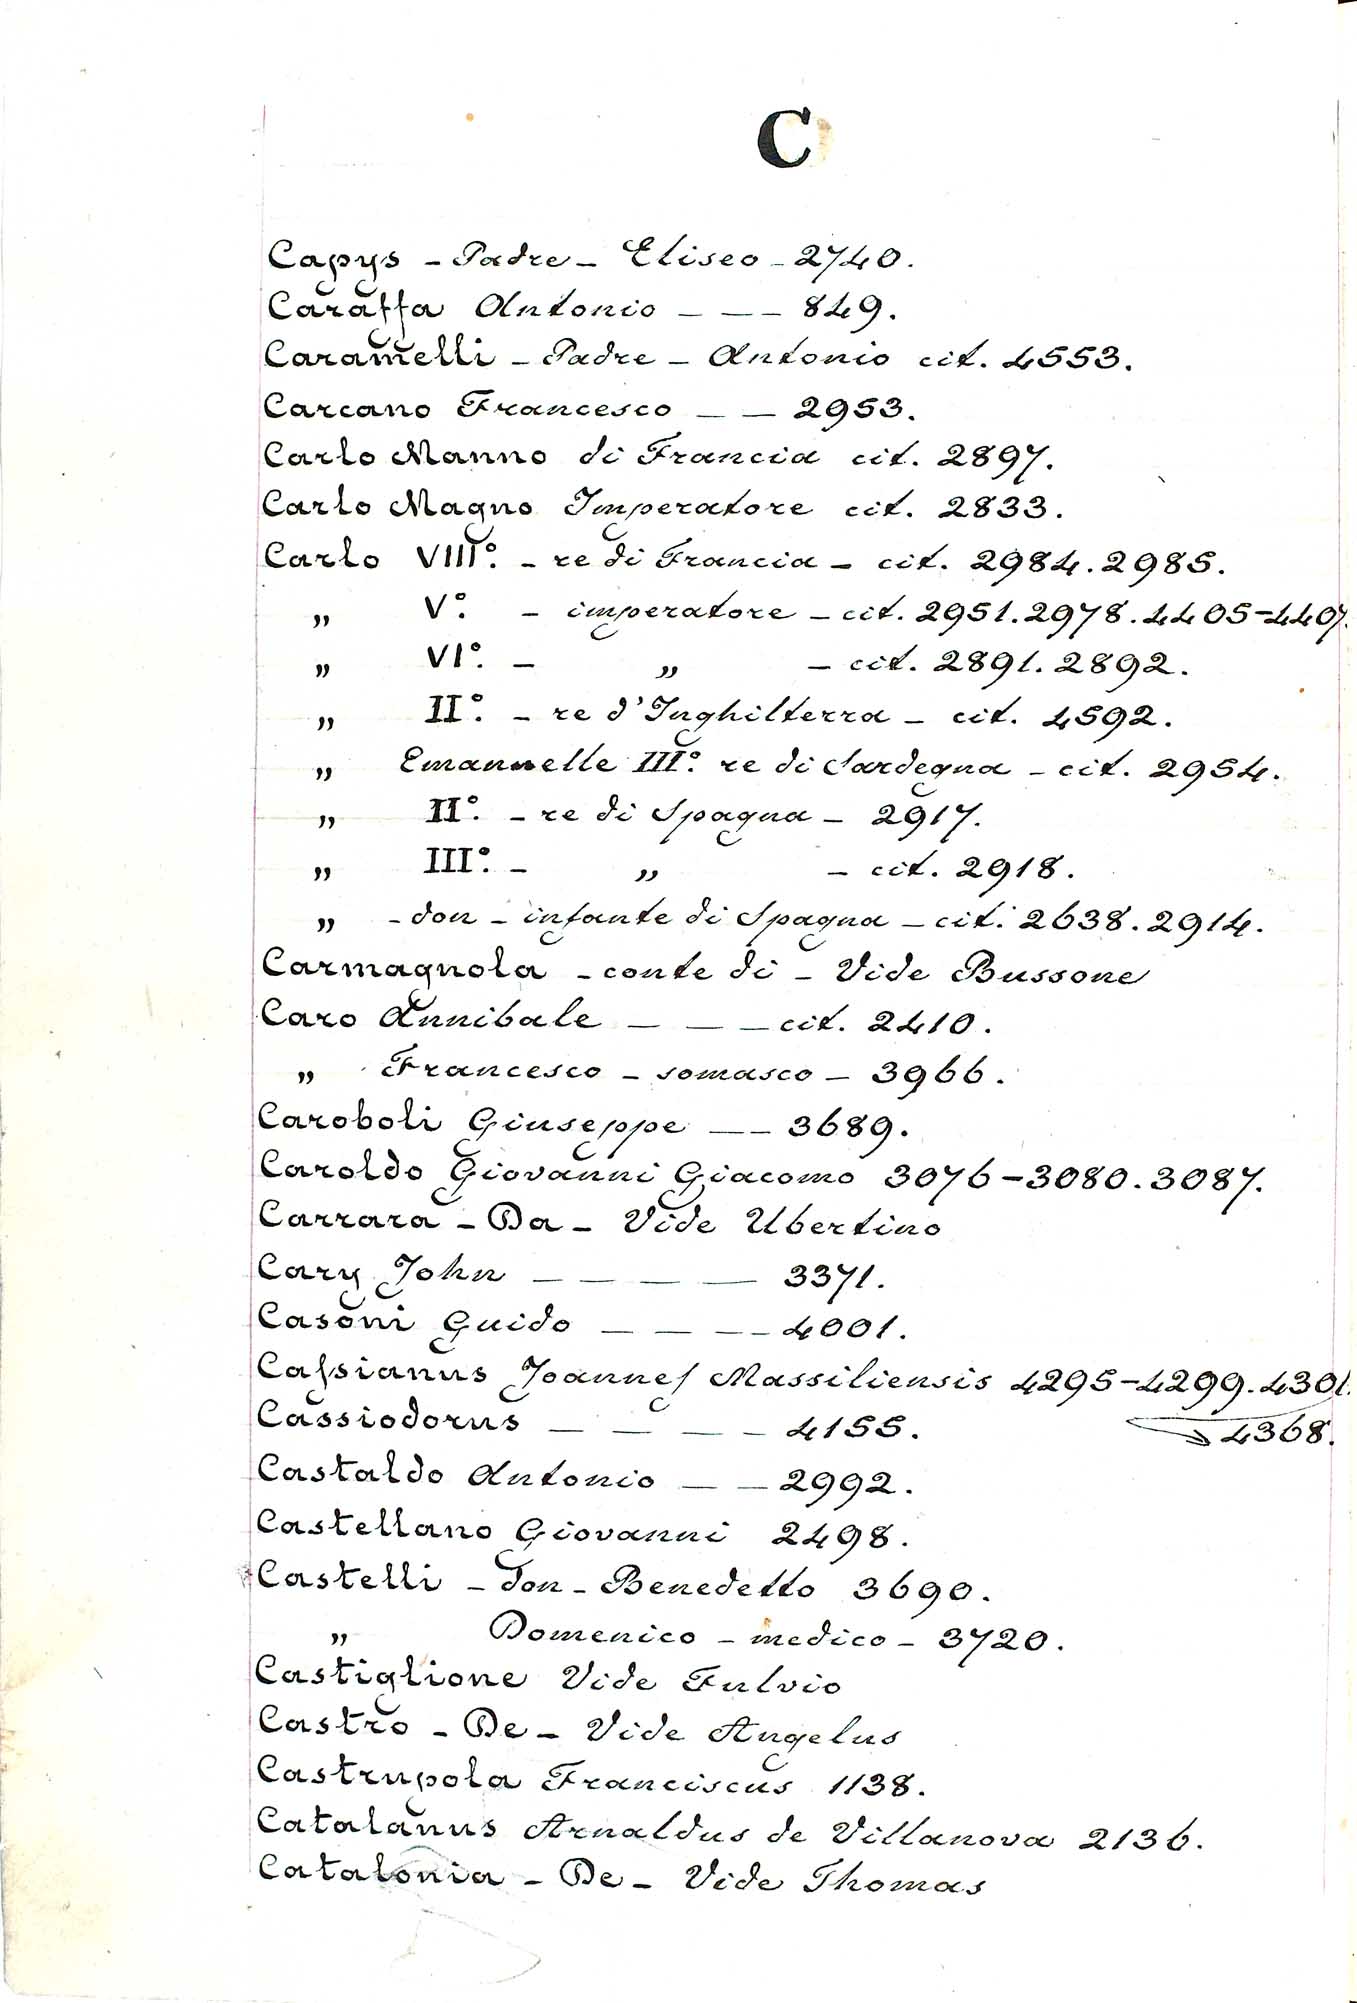 C
Capys - Padre - Eliseo - 2740.
Caraffa Antonio - - - 849.
Caramelli - Padre - Antonio cit. 4553.
Carcano Francesco - - 2953.
Carlo Manno di Francia cit. 2897.
Carlo Magno Imperatore cit. 2833.
Carlo VIII°. - re di Francia - cit. 2984. 2985.
„ V°. - imperatore - cit. 2951. 2978. 4405-4407.
„ VI°. - „ - cit. 2891. 2892.
„ II°. - re d'Inghilterra - cit. 4592.
„ Emannelle III°. re di Sardegna - cit. 2954.
„ II°. - re di Spagna - 2917.
„ III°. - „ - cit. 2918.
„ - don - infante di Spagna - cit. 2638. 2914.
Carmagnola - conte di - Vide Bussone
Caro Annibale - - - cit. 2410.
„ Francesco - somasco - 3966.
Caroboli Giuseppe - - 3689.
Caroldo Giovanni Giacomo 3076-3080. 3087.
Carrara - Da - Vide Ubertino
Cary John - - - - 3371.
Casoni Guido - - - - 4001.
Caſsianus Joanneſ Massiliensis 4295-4299. 4301.
Cassiodorus - - - - 4155. 4368.
Castaldo Antonio - - 2992.
Castellano Giovanni 2498.
Castelli - don - Benedetto 3690.
„ Domenico - medico - 3720.
Castiglione Vide Fulvio
Castro - De - Vide Angelus
Castrupola Franciscus 1138.
Catalanus Arnaldus de Villanova 2136.
Catalonia - De - Vide Thomas